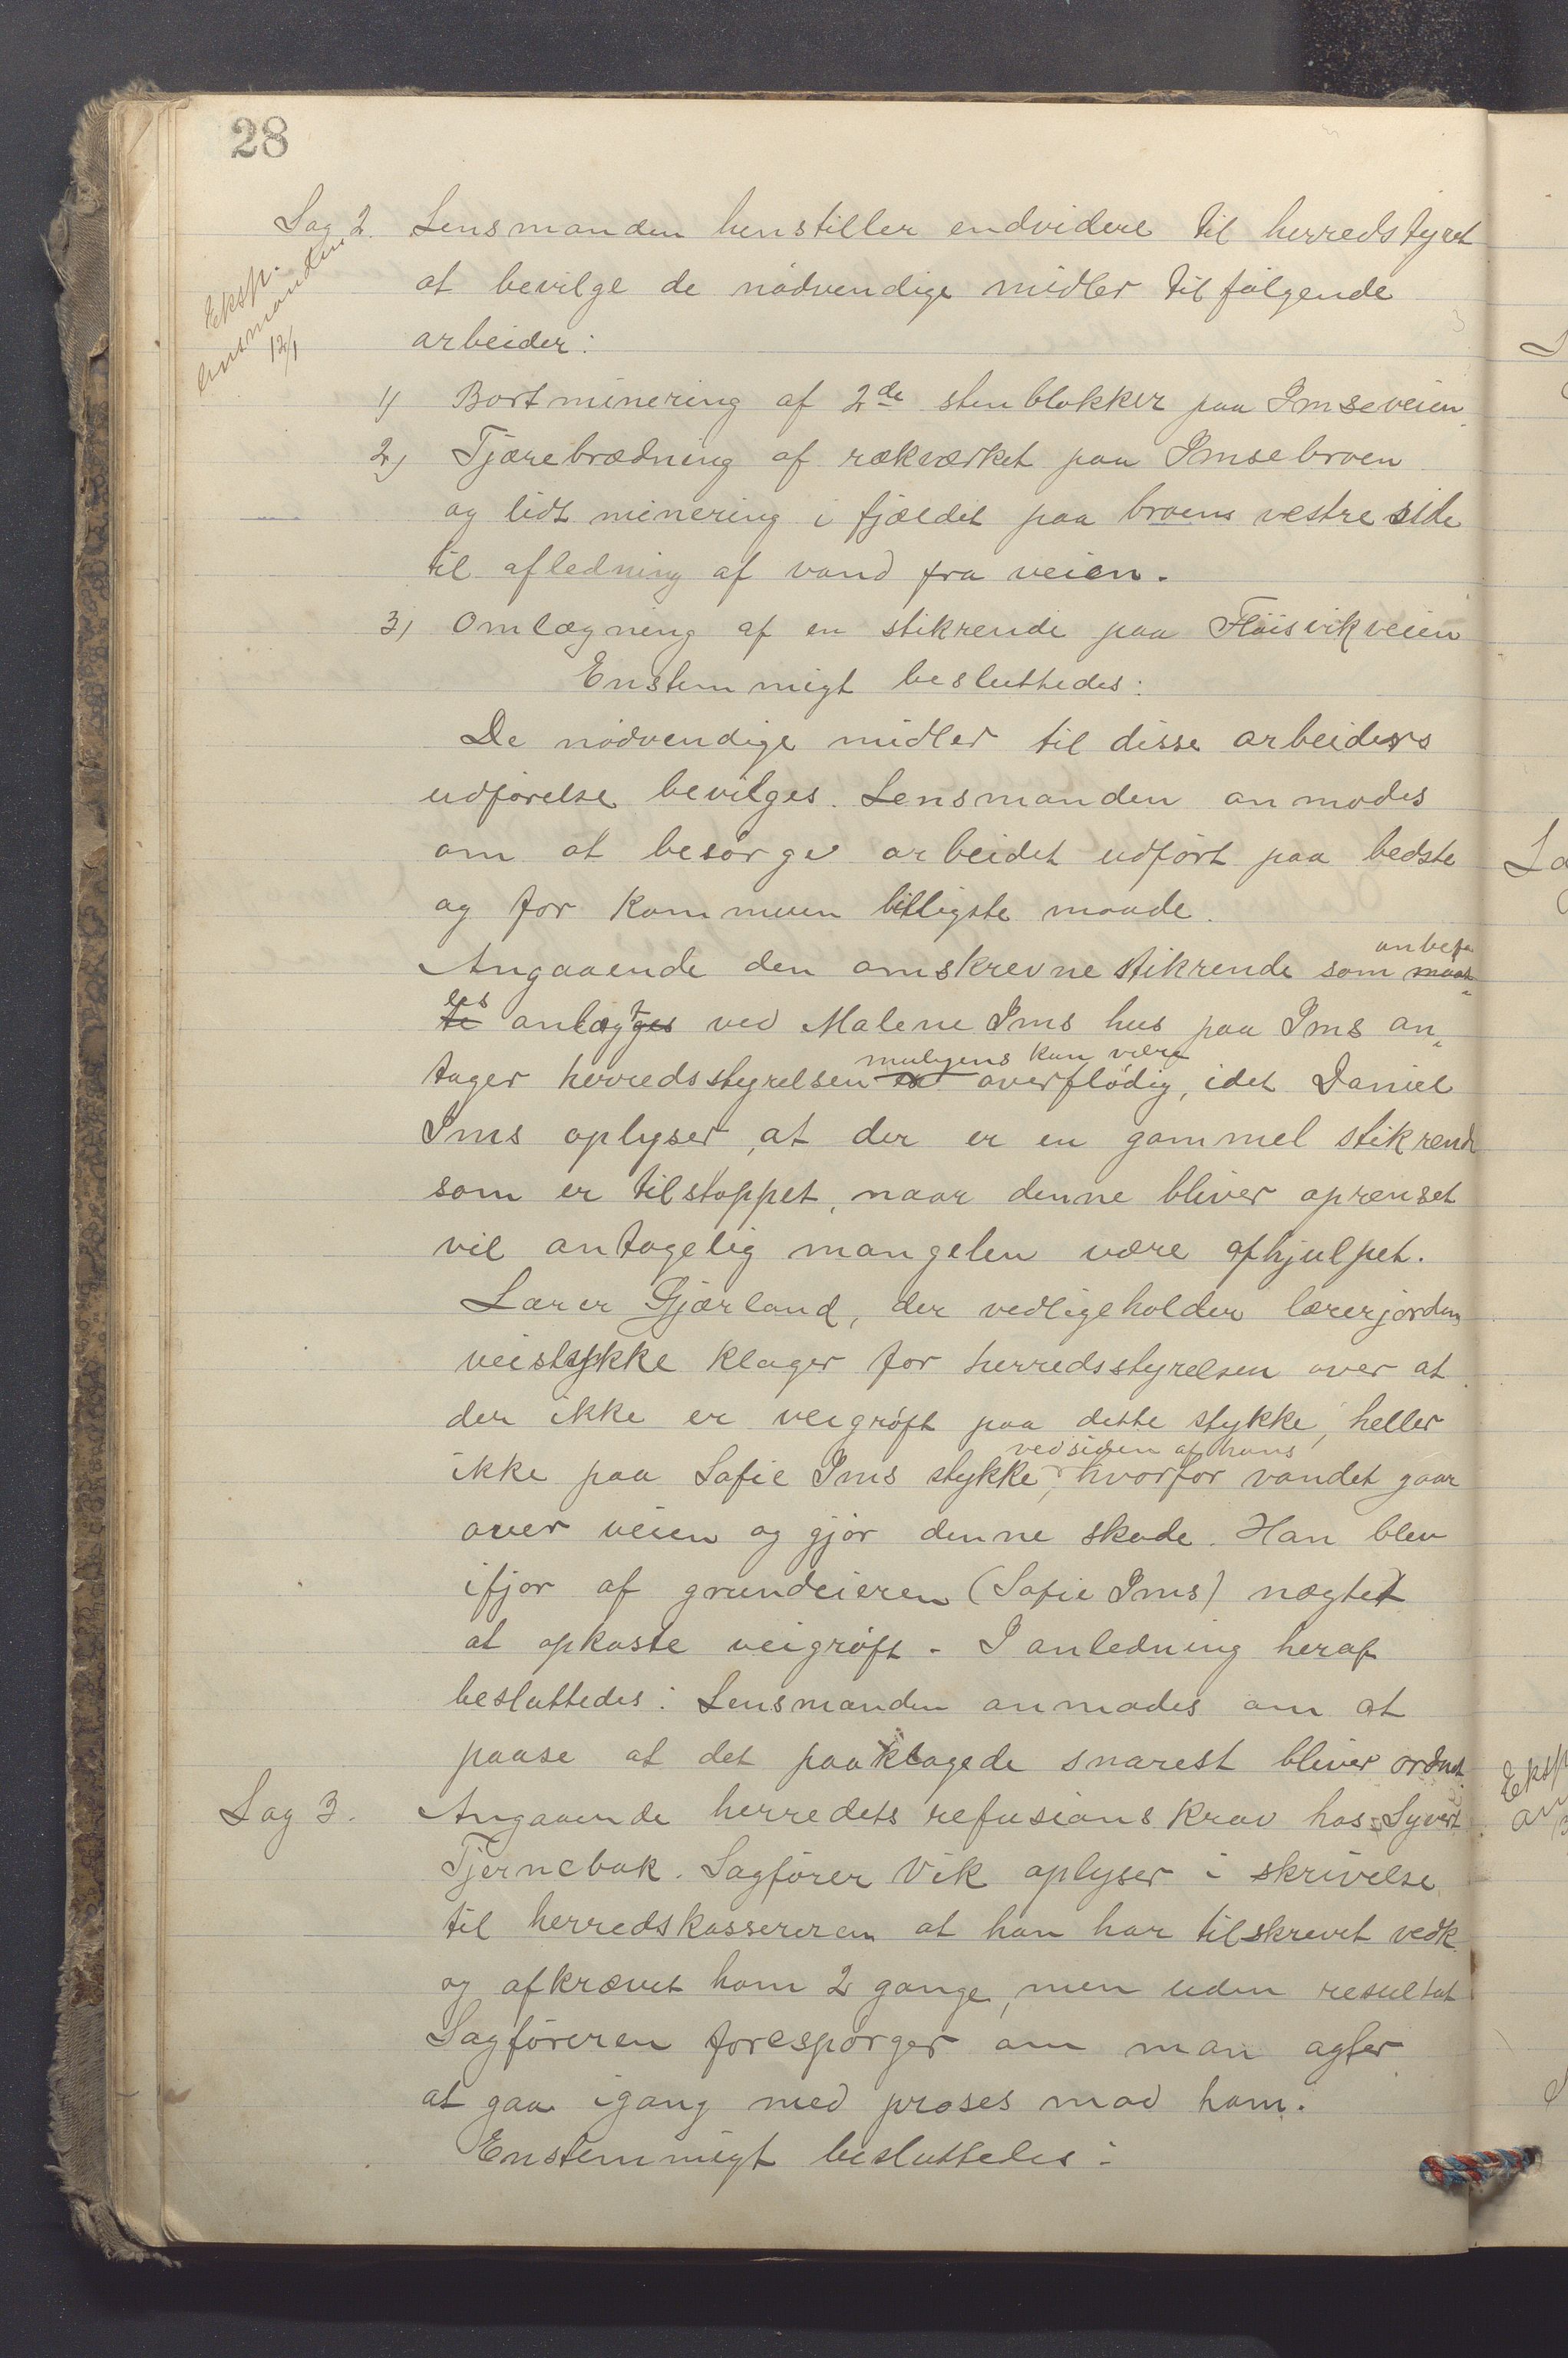 28
Sag 2. Lensmanden henstiller endvidere til herredstyret
Eksp.
lensmanden
12/1
at bevilge de nødvendige midler til følgende
arbeider:
1) Bortminering af 2de stenblokker paa Imseveien.
2) Tjærebrædning af rækværket paa Imsebroen
og lidt minering i fjældet paa broens vestre side
til afledning af vand fra veien.
3) Omlægning af en stikrende paa Fløisvikveien
Enstemmigt besluttedes:
De nødvendige midler til disse arbeiders
udførelse bevilges. Lensmanden anmodes
om at besørge arbeidet udført paa bedste
og for kommunen billigste maade.
anbefa
Angaaende den omskrevne stikrende som maat-
les
te anlægges ved Malene Ims hus paa Ims an-
muligens kan være
tager herredsstyrelsen er overflødig, idet Daniel
Ims oplyser, at der er en gammel stikrende
som er tilstoppet, naar denne bliver oprenset
vil antagelig mangelen være afhjulpet.
Lærer Gjærland, der vedligeholder lærerjordens
veistykke klager for herredsstyrelsen over at
der ikke er veigrøft paa dette stykke, heller
ved siden af hans
ikke paa Sofie Ims stykke, hvorfor vandet gaar
over veien og gjør denne skade. Han blev
ifjor af grundeieren (Sofie Ims) nægtet
at opkaste veigrøft. - I anledning heraf
besluttedes: Lensmanden anmodes om at
paase at det paaklagede snarest bliver ordnet.
Sag 3. Angaaende herredets refusionskrav hos Syvert
Tjernebak. Sagfører Vik oplyser i skrivelse
til herredskassereren at han har tilskrevet vedk.
og afkrævet ham 2 gange, men uden resultat
Sagføreren forespørger om man agter
at gaa igang med proses mod ham.
Enstemmigt besluttedes: